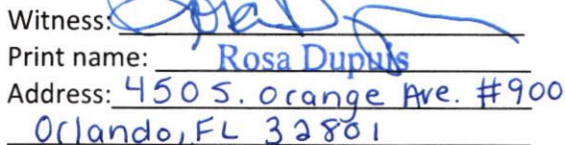 Witness:
Print name: Rosa Dupuis
Address: 450 S. Orange Ave. #900
Orlando, FL 32801